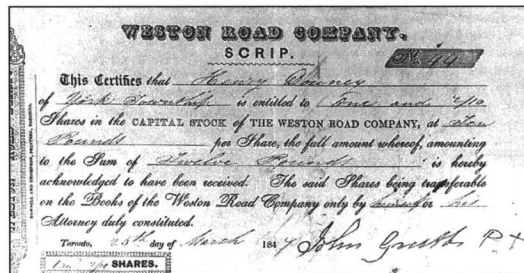 WESTON ROAD COMPANY.
SCRIP.
No 49
This Certifies that Henry Downey
of York Township is entitled to One and 2/10
Shares in the CAPITAL STOCK OF THE WESTON ROAD COMPANY, at Ten
Pounds per Share, the full amount whereof, amounting
to the Sum of Twelve Pounds is hereby
acknowledged to have been received. The said Shares being transferable
on the Books of the Weston Road Company only by or his
Attorney duly constituted.
Toronto, 25th day of March 184 John
SHARES.